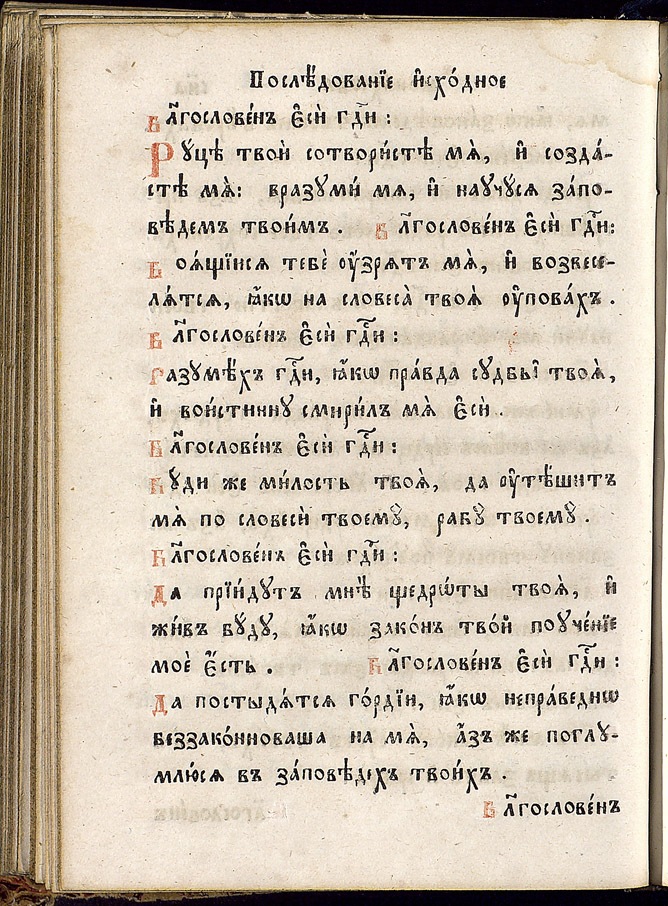 Послѣ́дованїе и҆схо́дное
Бл҃гослове́нъ є҆сѝ гдⷭ҇и:
Рꙋцѣ твои̑ сотвори́стѣ мѧ̀, и҆ созда́-
стѣ мѧ̀: вразꙋми́ мѧ, и҆ наꙋчꙋ́сѧ за́по-
вѣдемъ твои́мъ. Бл҃гослове́нъ є҆сѝ гдⷭ҇и:
Боѧ́щїисѧ тебѐ оу҆́зрѧтъ мѧ̀, и҆ возвесе-
лѧ́тсѧ, ꙗ҆́кѡ на словеса̀ твоѧ̀ оу҆пова́хъ.
Бл҃гослове́нъ є҆сѝ гдⷭ҇и:
Разꙋмѣ́хъ гдⷭ҇и, ꙗ҆́кѡ пра́вда сꙋдьбы̀ твоѧ̀,
и҆ вои́стиннꙋ смири́лъ мѧ̀ є҆сѝ.
Бл҃гослове́нъ є҆сѝ гдⷭ҇и:
Бꙋ́ди же ми́лость твоѧ̀, да оу҆тѣ́шитъ
мѧ̀ по словесѝ твоемꙋ̀, рабꙋ̀ твоемꙋ̀.
Бл҃гослове́нъ є҆сѝ гдⷭ҇и:
Да прїи́дꙋтъ мнѣ̀ щедрѡ́ты твоѧ̀, и҆
жи́въ бꙋ́дꙋ, ꙗ҆́кѡ зако́нъ тво́й поꙋче́нїе
моѐ є҆́сть. Бл҃гослове́нъ є҆сѝ гдⷭ҇и:
Да постыдѧ́тсѧ го́рдїи, ꙗ҆́кѡ непра́веднѡ
беззако́нноваша на мѧ̀, а҆́зъ же поглꙋ-
млю́сѧ въ за́повѣдехъ твои́хъ.
Бл҃гослове́нъ